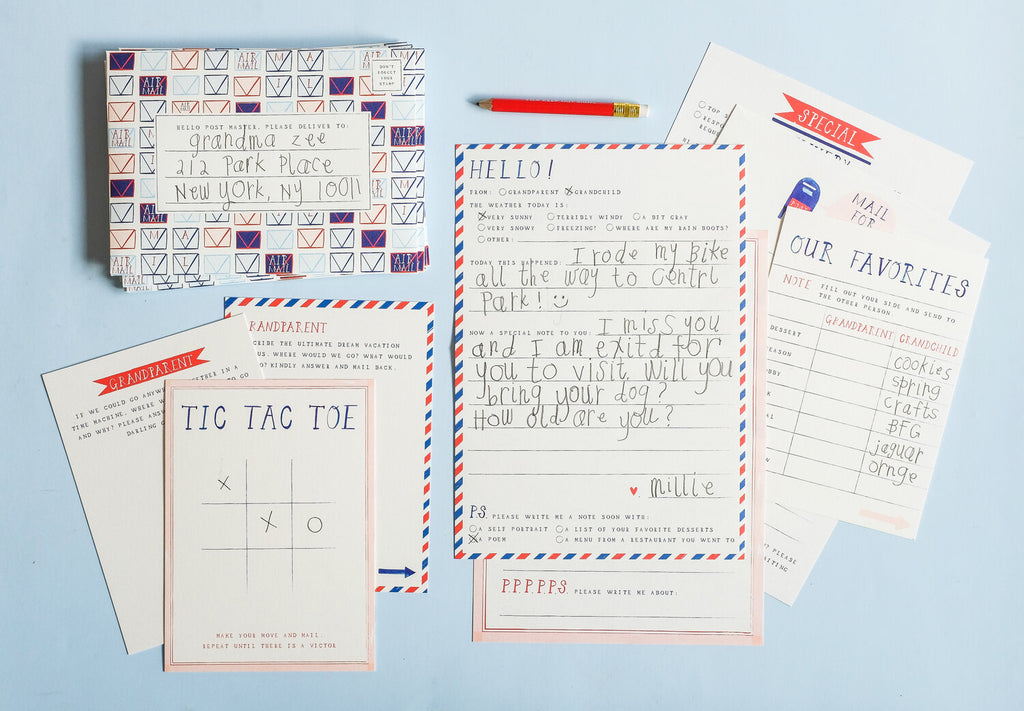 DON'T
FORGET
YOUR
STAMP
HELLO POST MASTER, PLEASE DELIVER TO:
grandma zee
212 Park Place
New York, NY 10011
AIR MAIL
GRANDPARENT
IF WE COULD GO ANYW
TIME MACHINE, WHERE W
AND WHY? PLEASE ANSW
DARLING G
GRANDPARENT
SCRIBE THE ULTIMATE DREAM VACATION
US. WHERE WOULD WE GO? WHAT WOULD
DO? KINDLY ANSWER AND MAIL BACK.
TIC TAC TOE
X
X O
MAKE YOUR MOVE AND MAIL.
REPEAT UNTIL THERE IS A VICTOR
HELLO!
FROM: GRANDPARENT GRANDCHILD
THE WEATHER TODAY IS:
VERY SUNNY TERRIBLY WINDY A BIT GRAY
VERY SNOWY FREEZING! WHERE ARE MY RAIN BOOTS?
OTHER:
TODAY THIS HAPPENED: I rode my Bike
all the way to Centrl
Park! :)
NOW A SPECIAL NOTE TO YOU: I miss you
and I am exitd for
you to visit. Will you
bring your dog?
How old are you?
♥ millie
P.S. PLEASE WRITE ME A NOTE SOON WITH:
A SELF PORTRAIT A LIST OF YOUR FAVORITE DESSERTS
A POEM A MENU FROM A RESTAURANT YOU WENT TO
P.P.P.P.P.S. PLEASE WRITE ME ABOUT:
SPECIAL
MAIL
FOR
OUR FAVORITES
NOTE FILL OUT YOUR SIDE AND SEND TO
THE OTHER PERSON
GRANDPARENT GRANDCHILD
DESSERT cookies
EASON spring
BBY crafts
BFG
AL jaguar
ornge
? PLEASE
AITING